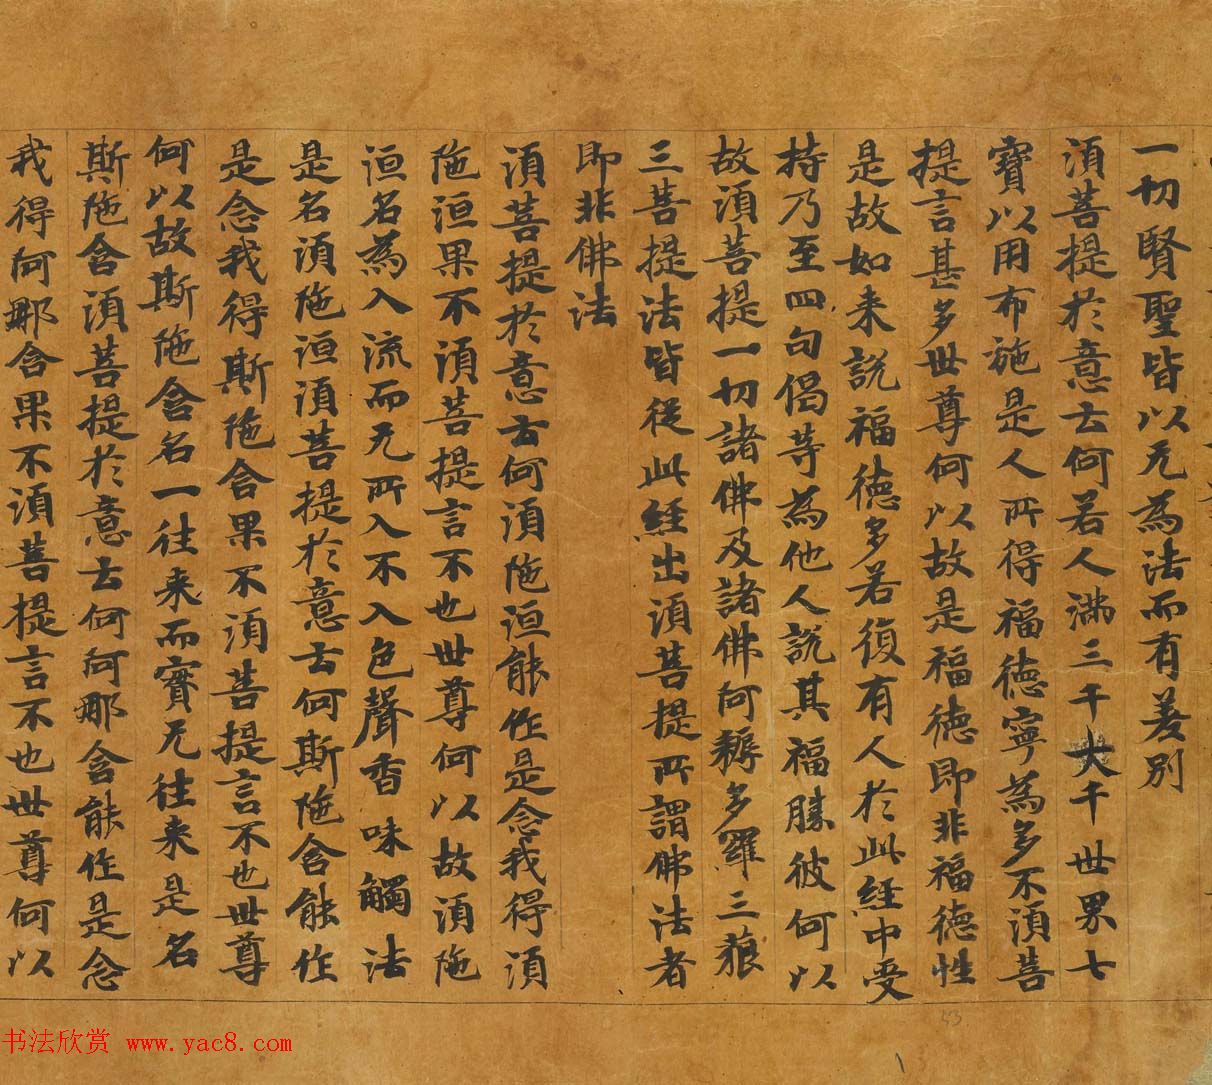 一切賢聖皆以无為法而有差別
須菩提於意云何若人滿三千大千世界七
寶以用布施是人所得福德寧為多不須菩
提言甚多世尊何以故是福德即非福德性
是故如来說福德多若復有人於此經中受
持乃至四句偈等為他人說其福勝彼何以
故須菩提一切諸佛及諸佛阿耨多羅三藐
三菩提法皆從此經出須菩提所謂佛法者
即非佛法
須菩提於意云何須陁洹能作是念我得須
陁洹果不須菩提言不也世尊何以故須陁
洹名為入流而无所入不入色聲香味觸法
是名須陁洹須菩提於意云何斯陁含能作
是念我得斯陁含果不須菩提言不也世尊
何以故斯陁含名一往来而實无往来是名
斯陁含須菩提於意云何阿那含能作是念
我得阿那含果不須菩提言不也世尊何以
53
书法欣赏 www.yac8.com